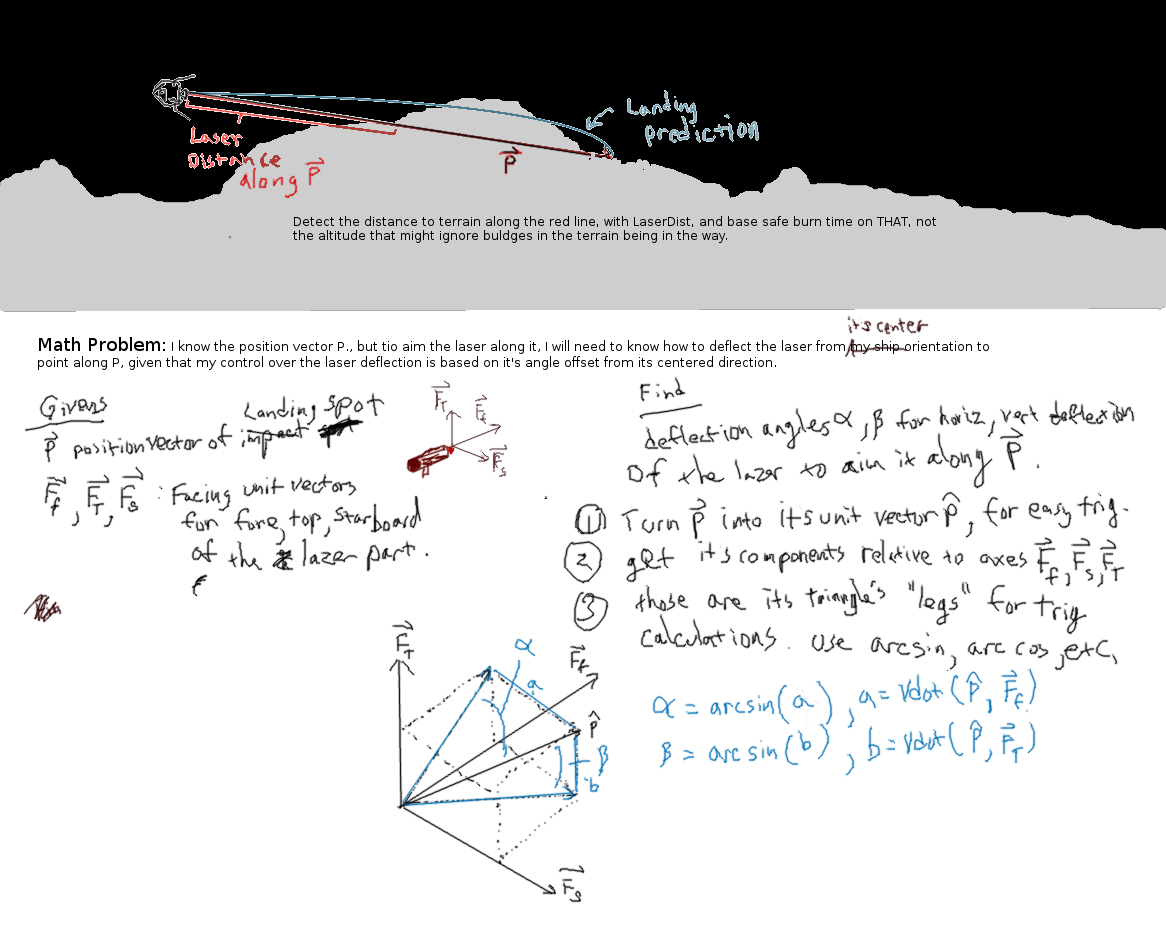 Landing
prediction
Laser
Distance
along P⃗
P⃗
Detect the distance to terrain along the red line, with LaserDist, and base safe burn time on THAT, not
the altitude that might ignore buldges in the terrain being in the way.
its center
Math Problem: I know the position vector P., but tio aim the laser along it, I will need to know how to deflect the laser from my ship orientation to
point along P, given that my control over the laser deflection is based on it's angle offset from its centered direction.
Givens
Landing spot
P⃗ position vector of impact spot
F⃗f, F⃗T, F⃗s : Facing unit vectors
for fore, top, starboard
of the lazer part.
F⃗T
F⃗f
F⃗s
Find
deflection angles α, β for horiz, vert deflection
of the lazer to aim it along P⃗.
① Turn P⃗ into its unit vector P̂, for easy trig.
② get its components relative to axes F⃗f, F⃗s, F⃗T
③ those are its triangle's "legs" for trig
calculations. Use arcsin, arc cos, etc,
α = arcsin(a), a = Vdot(P̂, F⃗f)
β = arcsin(b), b = Vdot(P̂, F⃗T)
F⃗T
α
F⃗f
a
P̂
β
b
F⃗s